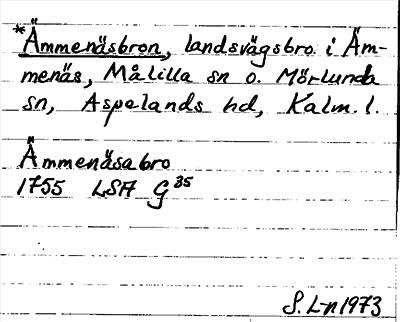 *Ämmenäsbron, landsvägsbro i Äm-
menäs, Målilla sn o. Mörlunda
sn, Aspelands hd, Kalm. l.
Ämmenäsabro
1755 LSA G 35
S. L-n 1973